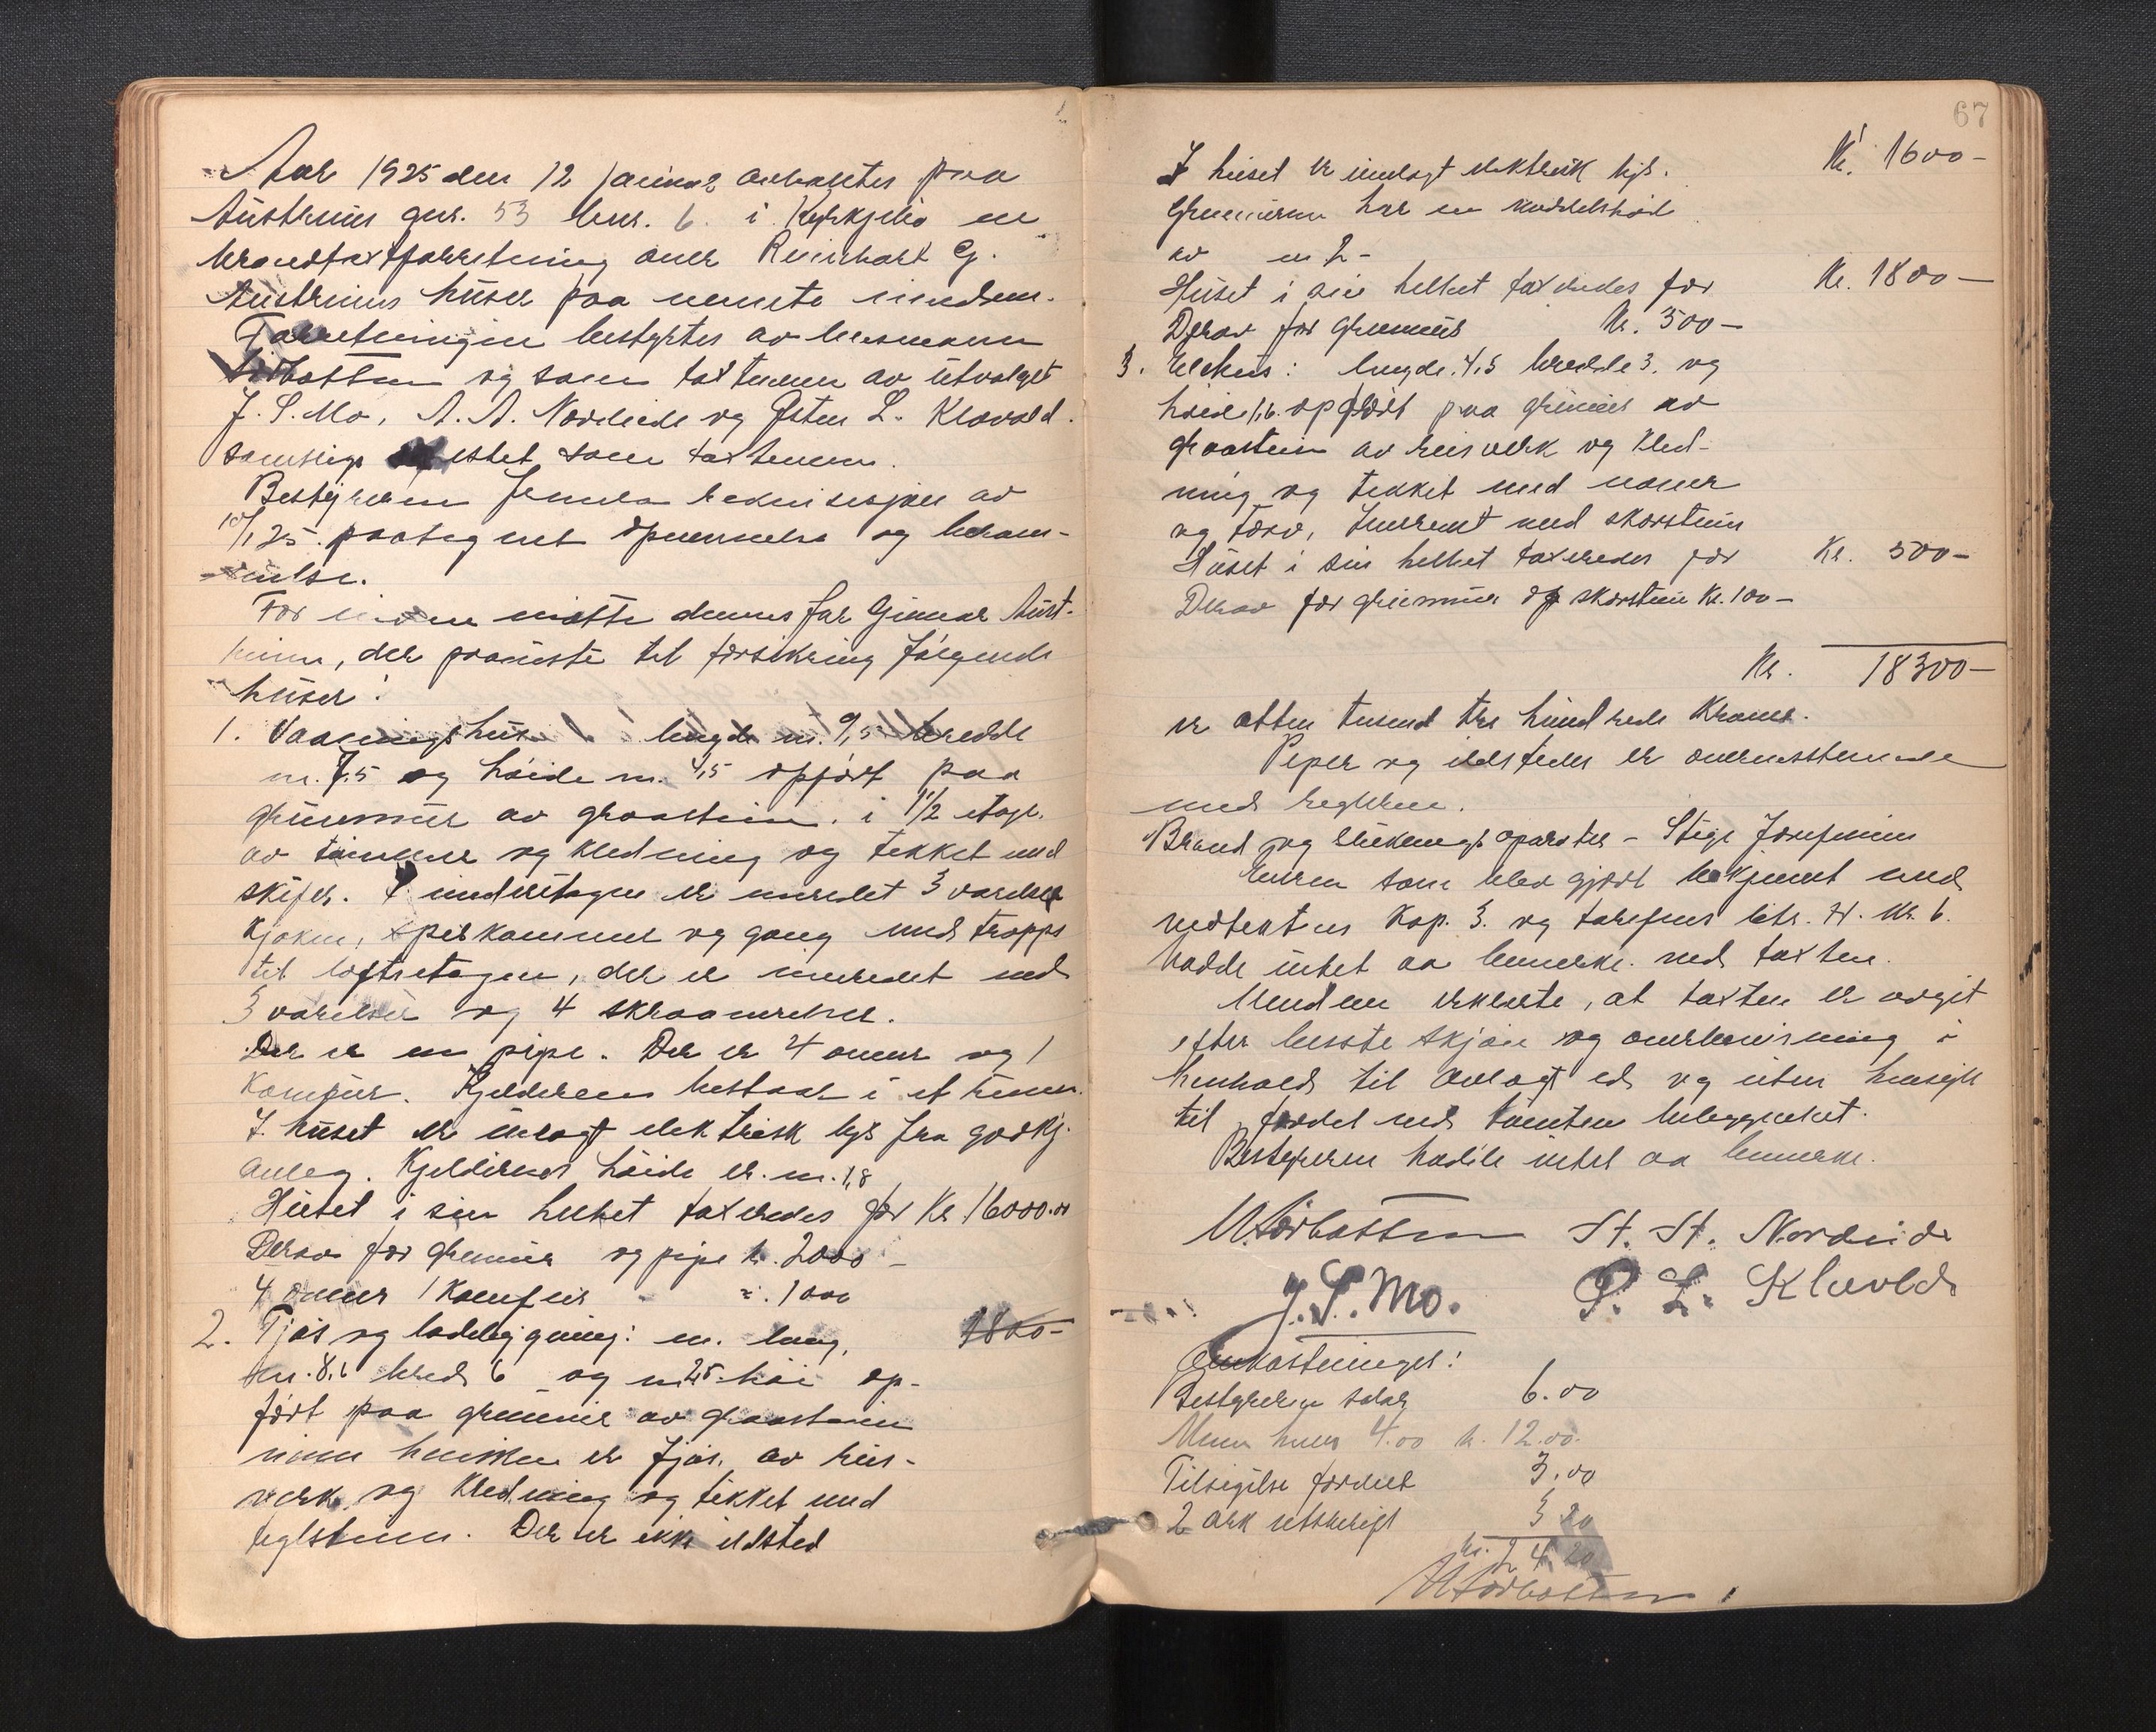 Aar 1925 den 12 januar avholdtes paa
Austrheim gnr. 53 bnr. 6. i Kyrkjebø en
brandtaxtforretning over Reinhart G.
Austreims huser paa nevnte eiendom.
Forretningen bestyrtes av lensmann
Nordbotten og som taxtmenn av utvalget
J. S. Mo, A. A. Nordeide og Østen L. Klævold.
samtlige estet som taxtmenn.
Bestyreren fremla rekvisisjon av
10/1 25. paategnet opnevnelse og beram-
melse.
For eieren møtte dennes far Gunnar Aust-
reim, der paaviste til forsikring følgende
huser:
1. Vaaningshus lengde m. 9,5 bredde
m. 7.5 og høide m. 4,5 opført paa
grunmur av graastein. i 1 1/2 etage.
av tømmer og kledning og tekket med
skifer. I underetagen er inredet 3 værelser
Kjøken, spiskammer og gang med trapp
til loftsetagen, der er inredet med
3 værelser og 4 skraaværelser.
Der er en pipe. Der er 4 ovner og 1
Komfur. Kjelderen bestaar i et rum.
I huset er inlagt elektrisk lys fra godkj.
anleg. Kjelderens høide er m. 1,8
Huset i sin helhet taxeredes for Kr. 16000.00
Derav for grunmur og pipe kr. 2000 -
4 ovner 1 Komfur - " . 1000
2. Fjøs og ladebygning: m. lang, 1800-
m. 8,6 bred 6 og m 2,5 høi op-
ført paa grunmur av graastein
innen hvilken er fjøs. av reis-
verk og kledning og tekket med
teglstein. Der er ikke ildsted
67
Kr. 1600-
I huset er innlagt elektrisk lys.
Grunmuren har en middelshøid
av m 2-
Huset i sin helhet taxeredes for Kr. 1800-
Derav for grunmur Kr. 300-
3. Eldhus: lengde 4,5 bredde 3. og
høide 1,6. opført paa grunmur av
graastein av reisverk og kled-
ning og tekket med never
og torv, Innredet med skorstein
Huset i sin helhet taxeredes for Kr. 500-
Derav for grunmur og skorstein Kr. 100-
Kr. 18300-
er atten tusend tre hundrede Kroner.
Piper og ildsteder er overensstemmende
med reglerne.
Brand og slukningsaparater - Stige Forefinnes
Eieren som blev gjort bekjennt med
vedtektenes Kap. 3. og tarifens litr. H. Nr. 6.
hadde intet aa bemerke ved taxten.
Mendene erklærte, at taxten er avgit
efter beste skjøn og overbevisning i
henhold til avlagt ed og uten hensyn
til fordel ved tomtens beliggenhet.
Bestyreren hadde intet aa bemerke.
A. A. Nordeide
J. S. Mo. Ø. L. Klævold
Omkostninger:
Bestyreren salær 6.00
Menn hver 4.00 kr. 12.00
Tilsigelse fordelt 3.00
2 ark utskrift 3 20
kr. 24.20